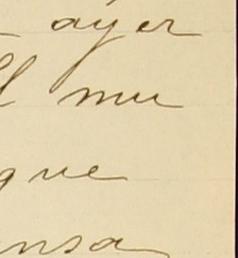 ayer
mu
que
nsa